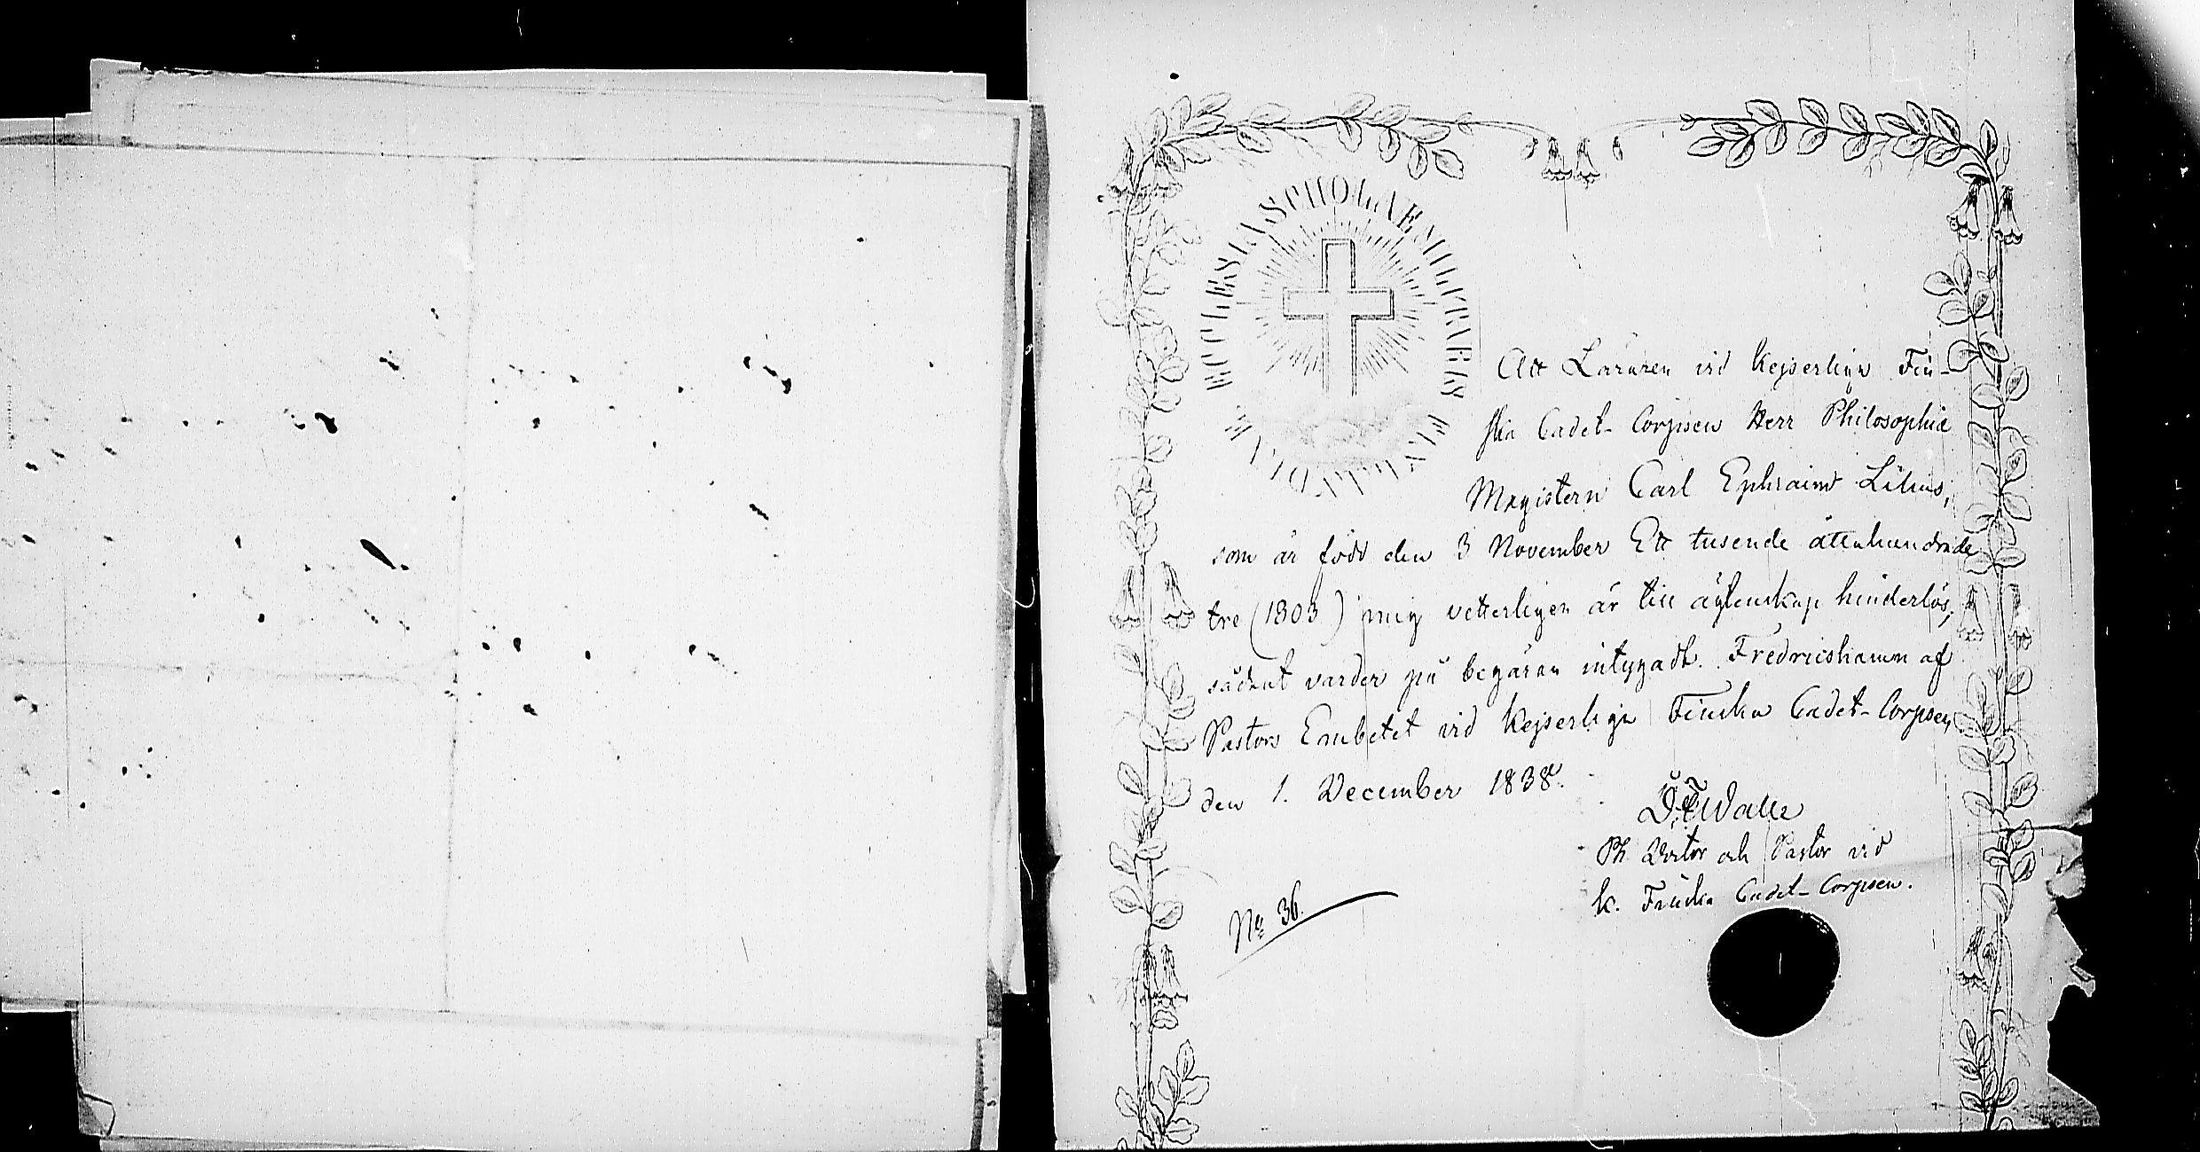 ECCLESIA SCHOLAE MILITARIS FINLANDIAE
Att Läraren vid Kejserliga Fin-
ska Cadet-Corpsen Herr Philosophiæ
Magistern Carl Ephraim Lilius,
som är född den 3 November Ett tusende åttahundrade
tre (1803) mig vetterligen är till äktenskap hinderlös,
sådant varder på begäran intygadt. Fredricshamn af
Pastors Embetet vid Kejserliga Finska Cadet-Corpsen,
den 1. December 1838.
Walle
Ph. Doctor och Pastor vid
k. Finska Cadet-Corpsen.
No 36.